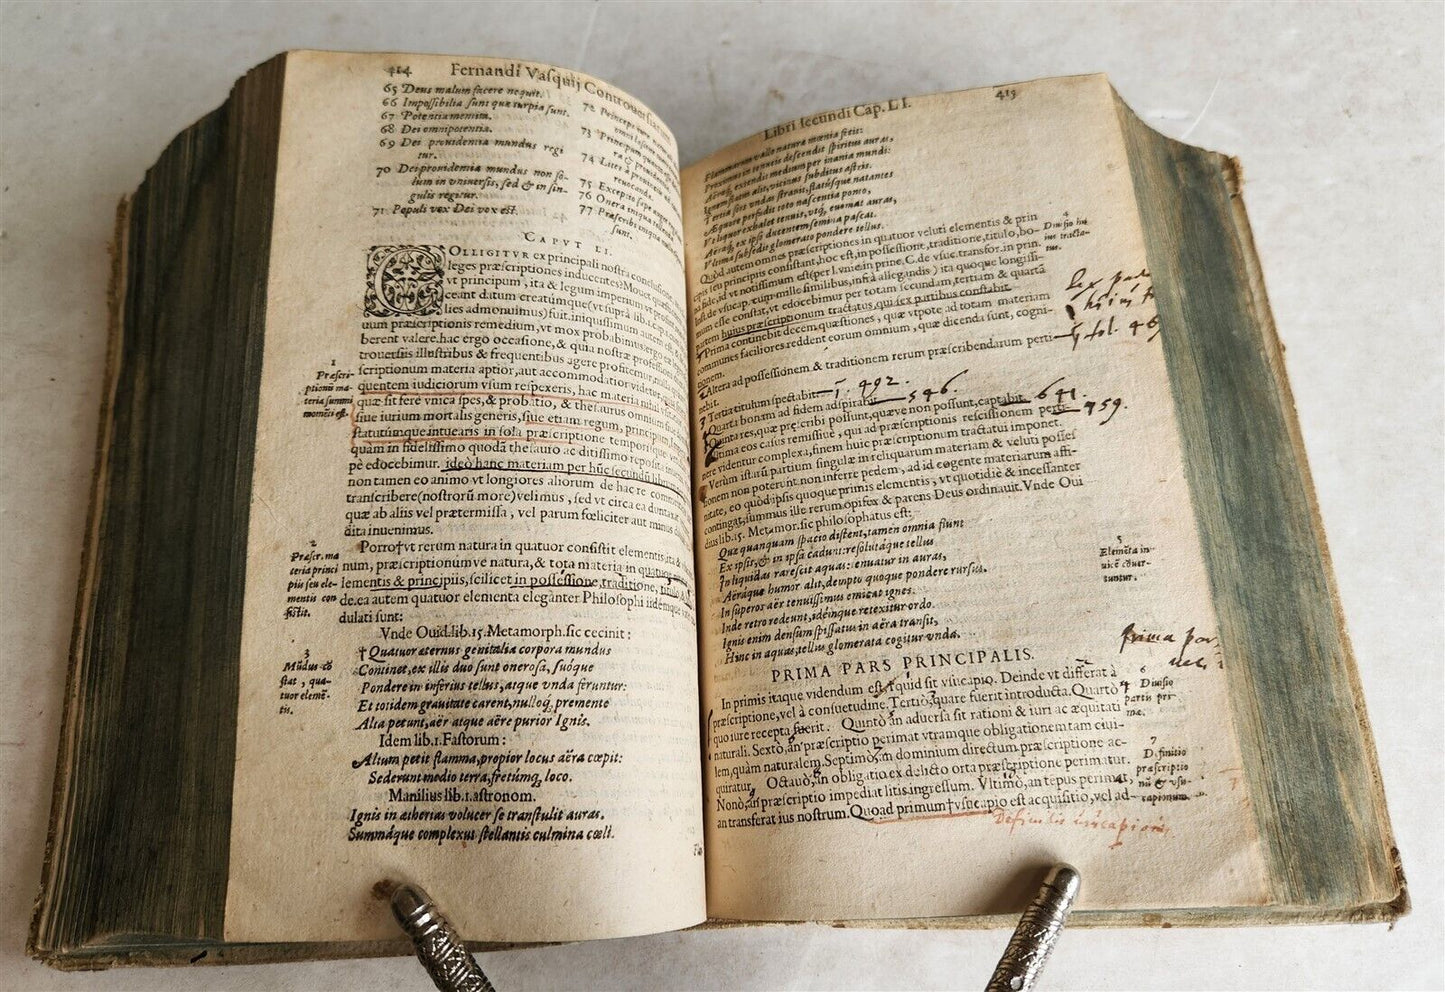 414 Fernandi Vasquij Controuersiarum
65 Deus malum facere nequit.
66 Impossibilia sunt quæ turpia sunt.
67 Potentia
68 Dei omnipotentia.
69 Dei prouidentia mundus regi
tur.
70 Dei prouidentia mundus non so-
lum in vniuersis, sed & in sin-
gulis regitur.
71 Populi vox Dei vox est.
72 Princeps iure
73 Principum
74 Litex à
reuocanda.
75 Excepto
76 Onera iniqua
77 Præscribi iniqua
sunt.
CAPVT LI.
COLLIGITVR ex principali nostra conclusione,
leges præscriptiones inducentes? Mouet
vt principum, ita & legum imperium
ceant datum creatúmque (vt suprà lib. 1. c.
lies admonuimus) fuit. iniquissimum autem est
uum præscriptionis remedium, vt mox probabimus: ergo
berent valere. hac ergo occasione, & quia nostræ professionis
trouersiis illustribus & frequentibus agere profitemur, nulla
scriptionum materia aptior, aut accommodatior videtur,
quentem iudiciorum vsum respexeris, hac materia nihil
quæ sit ferè vnica spes, & probatio, & thesaurus omnium
siue iurium mortalis generis, siue etiam regum, principum,
statutúmque intuearis in sola præscriptione temporísque
quàm in fidelissimo quodã thesauro ac ditissimo reposita
pè edocebimur. ideò hanc materiam per hũc secundũ librum
non tamen eo animo vt longiores aliorum de hac re
transcribere (nostrorũ more) velimus, sed vt circa ea duntaxat
quæ ab aliis vel prætermissa, vel parum fœliciter aut minus
dita inuenimus.
1
Præscri-
ptionũ ma-
teria summi
momẽti est.
Porro†vt rerum natura in quatuor consistit elementis, ita &
num, præscriptionum ve natura, & tota materia in quatuor
lementis & principiis, scilicet in possessione, traditione, titulo, &
de. ea autem quatuor elementa eleganter Philosophi iidémque
dulati sunt:
2
Præscr. ma
teria princi
piis seu ele-
mentis con
sistit.
Vnde Ouid. lib. 15. Metamorph. sic cecinit:
†Quatuor æternus genitalia corpora mundus
Continet, ex illis duo sunt onerosa, suóque
Pondere in inferius tellus, atque vnda feruntur:
Et totidem grauitate carent, nullóq; premente
Alta petunt, aër atque aëre purior Ignis.
3
Mũdus cõ
stat, qua-
tuor elemẽ-
tis.
Idem lib. 1. Fastorum:
Altum petit flamma, propior locus aëra cœpit:
Sederunt medio terra, fretúmq; loco.
Manilius lib. 1. astronom.
Ignis in ætherias volucer se transtulit auras.
Summáque complexus stellantis culmina cœli.
Fla
Libri secundi Cap. LI. 415
Flammarum vallo naturæ mœnia fecit:
Proximus in tenueis descendit spiritus auras,
Aëráq; extendit medium per inania mundi:
Ignem flatus alit, vicinus subditus astris.
Tertia sors vndas strauit, fluctúsque natantes
Æquore perfudit toto nascentia ponto,
Vt liquor exhalet tenuis, vtq; euomat auras,
Aëráq; ex ipsi ducentem semina pascat.
Vltima subsedit glomerato pondere tellus.
Quòd autem omnes præscriptiones in quatuor veluti elementis & prin
cipiis seu principiis consistant, hoc est, in possessione, traditione, titulo, bo-
na fide, id vt notissimum est (per l. vnic. in princ. C. de vsuc. transfor. in prin.
Inst. de vsucap. cum mille similibus, infrà allegandis) ita quoque longissi-
mum esse constat, vt edocebimur per totam secundam, tertiam & quartã
partem huius præscriptionum tractatus, qui sex partibus constabit.
4
Diuisio hu
ius tracta-
tus.
Prima continebit decem quæstiones, quæ vtpote ad totam materiam
communes faciliores reddent eorum omnium, quæ dicenda sunt, cogni-
tionem.
Altera ad possessionem & traditionem rerum præscribendarum perti-
nebit.
fol. 46
Tertia titulum spectabit 492.
Quarta bonam ad fidem adspirabit 546.
Quinta res, quæ præscribi possunt, quæve non possunt, captabit 641.
Vltima eos casus remissiuè, qui ad præscriptionis rescissionem perti 959.
nere videntur complexa, finem huic præscriptionum tractatui imponet.
Verùm istarũ partium singulæ in reliquarum materiam & veluti posses
sionem non poterunt non inferre pedem, ad id cogente materiarum affi-
nitate, eo quòd ipsis quoque primis elementis, vt quotidiè & incessanter
contingat, summus ille rerum opifex & parens Deus ordinauit. Vnde Oui
dius lib. 15. Metamor. sic philosophatus est:
Quæ quanquam spacio distent, tamen omnia fiunt
Ex ipsis, & in ipsa cadunt: resolutáque tellus
In liquidas rarescit aquas: tenuatur in auras,
Aëráque humor abit, dempto quoque pondere rursus.
In superos aër tenuissimus emicat ignes.
Inde retro redeunt, idémque retexitur ordo.
Ignis enim densum spissatus in aëra transit,
Hinc in aquas, tellus glomerata cogitur vnda.
5
Elemẽta in
uicẽ cõuer-
tuntur.
prima par
PRIMA PARS PRINCIPALIS.
In primis itaque videndum est, quid sit vsucapio. Deinde vt differat à
præscriptione, vel à consuetudine. Tertiò, quare fuerit introducta. Quartò
quo iure recepta fuerit. Quintò an aduersa sit rationi & iuri ac æquitati
naturali. Sextò, an præscriptio perimat vtramque obligationem tam ciui-
lem, quàm naturalem. Septimò, an dominium directum præscriptione ac-
quiratur. Octauò, an obligatio ex delicto orta præscriptione perimatur.
Nonò, an præscriptio impediat litis ingressum. Vltimò, an tempus perimat,
an transferat ius nostrum. Quoad primum†vsucapio est acquisitio, vel ad-
6
Diuisio
partis pri-
mæ.
7
Definitio
præscriptio
nũ & vsu-
capionum.